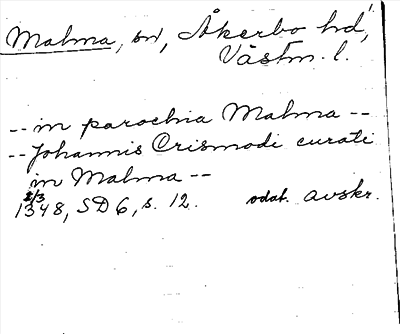 Malma, sn, Åkerbo hd,
Västm. l.
-- in parochia Malma --
-- Johannis Crismodi curati
in Malma --
2/3
1348, SD 6, s. 12. odat. avskr.